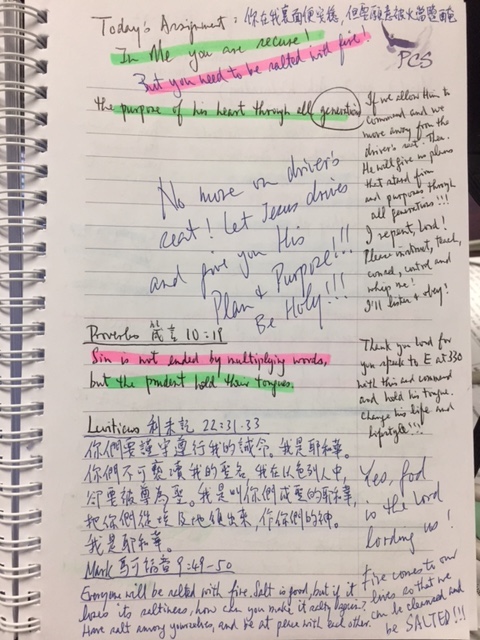 Today's Assignment: 你在我裏面便安穩，但要願意被火當鹽醃
In Me you are secure!
But you need to be salted with fire!
PCS
the purpose of his heart through all generation
If we allow Him to
command and we
move away from the
driver's seat. Then
He will give us plans
that stand firm
and purposes through
all generations!!!
I repent, Lord!
Please instruct, teach,
counsel, control and
whip me!
I'll listen & obey!
No more on driver's
seat! Let Jesus drives
and give you His
Plan & Purpose!!!
Be Holy!!!
Proverbs 箴言 10:19
Sin is not ended by multiplying words,
but the prudent hold their tongues.
Thank you Lord for
you speak to E at 330
with this and command
and hold his tongue.
Change his life and
lifestyle!!!
Leviticus 利未記 22:31-33
你們要謹守遵行我的誡命。我是耶和華。
你們不可褻瀆我的聖名，我在以色列人中，
卻要被尊為聖。我是叫你們成聖的耶和華，
把你們從埃及地領出來，作你們的神。
我是耶和華。
Yes, God
is the Lord
lording us!
Mark 馬可福音 9:49-50
Everyone will be salted with fire. Salt is good, but if it
loses its saltiness, how can you make it salty again?
Have salt among yourselves, and be at peace with each other.
Fire comes to our
lives so that we
can be cleansed and
be SALTED!!!